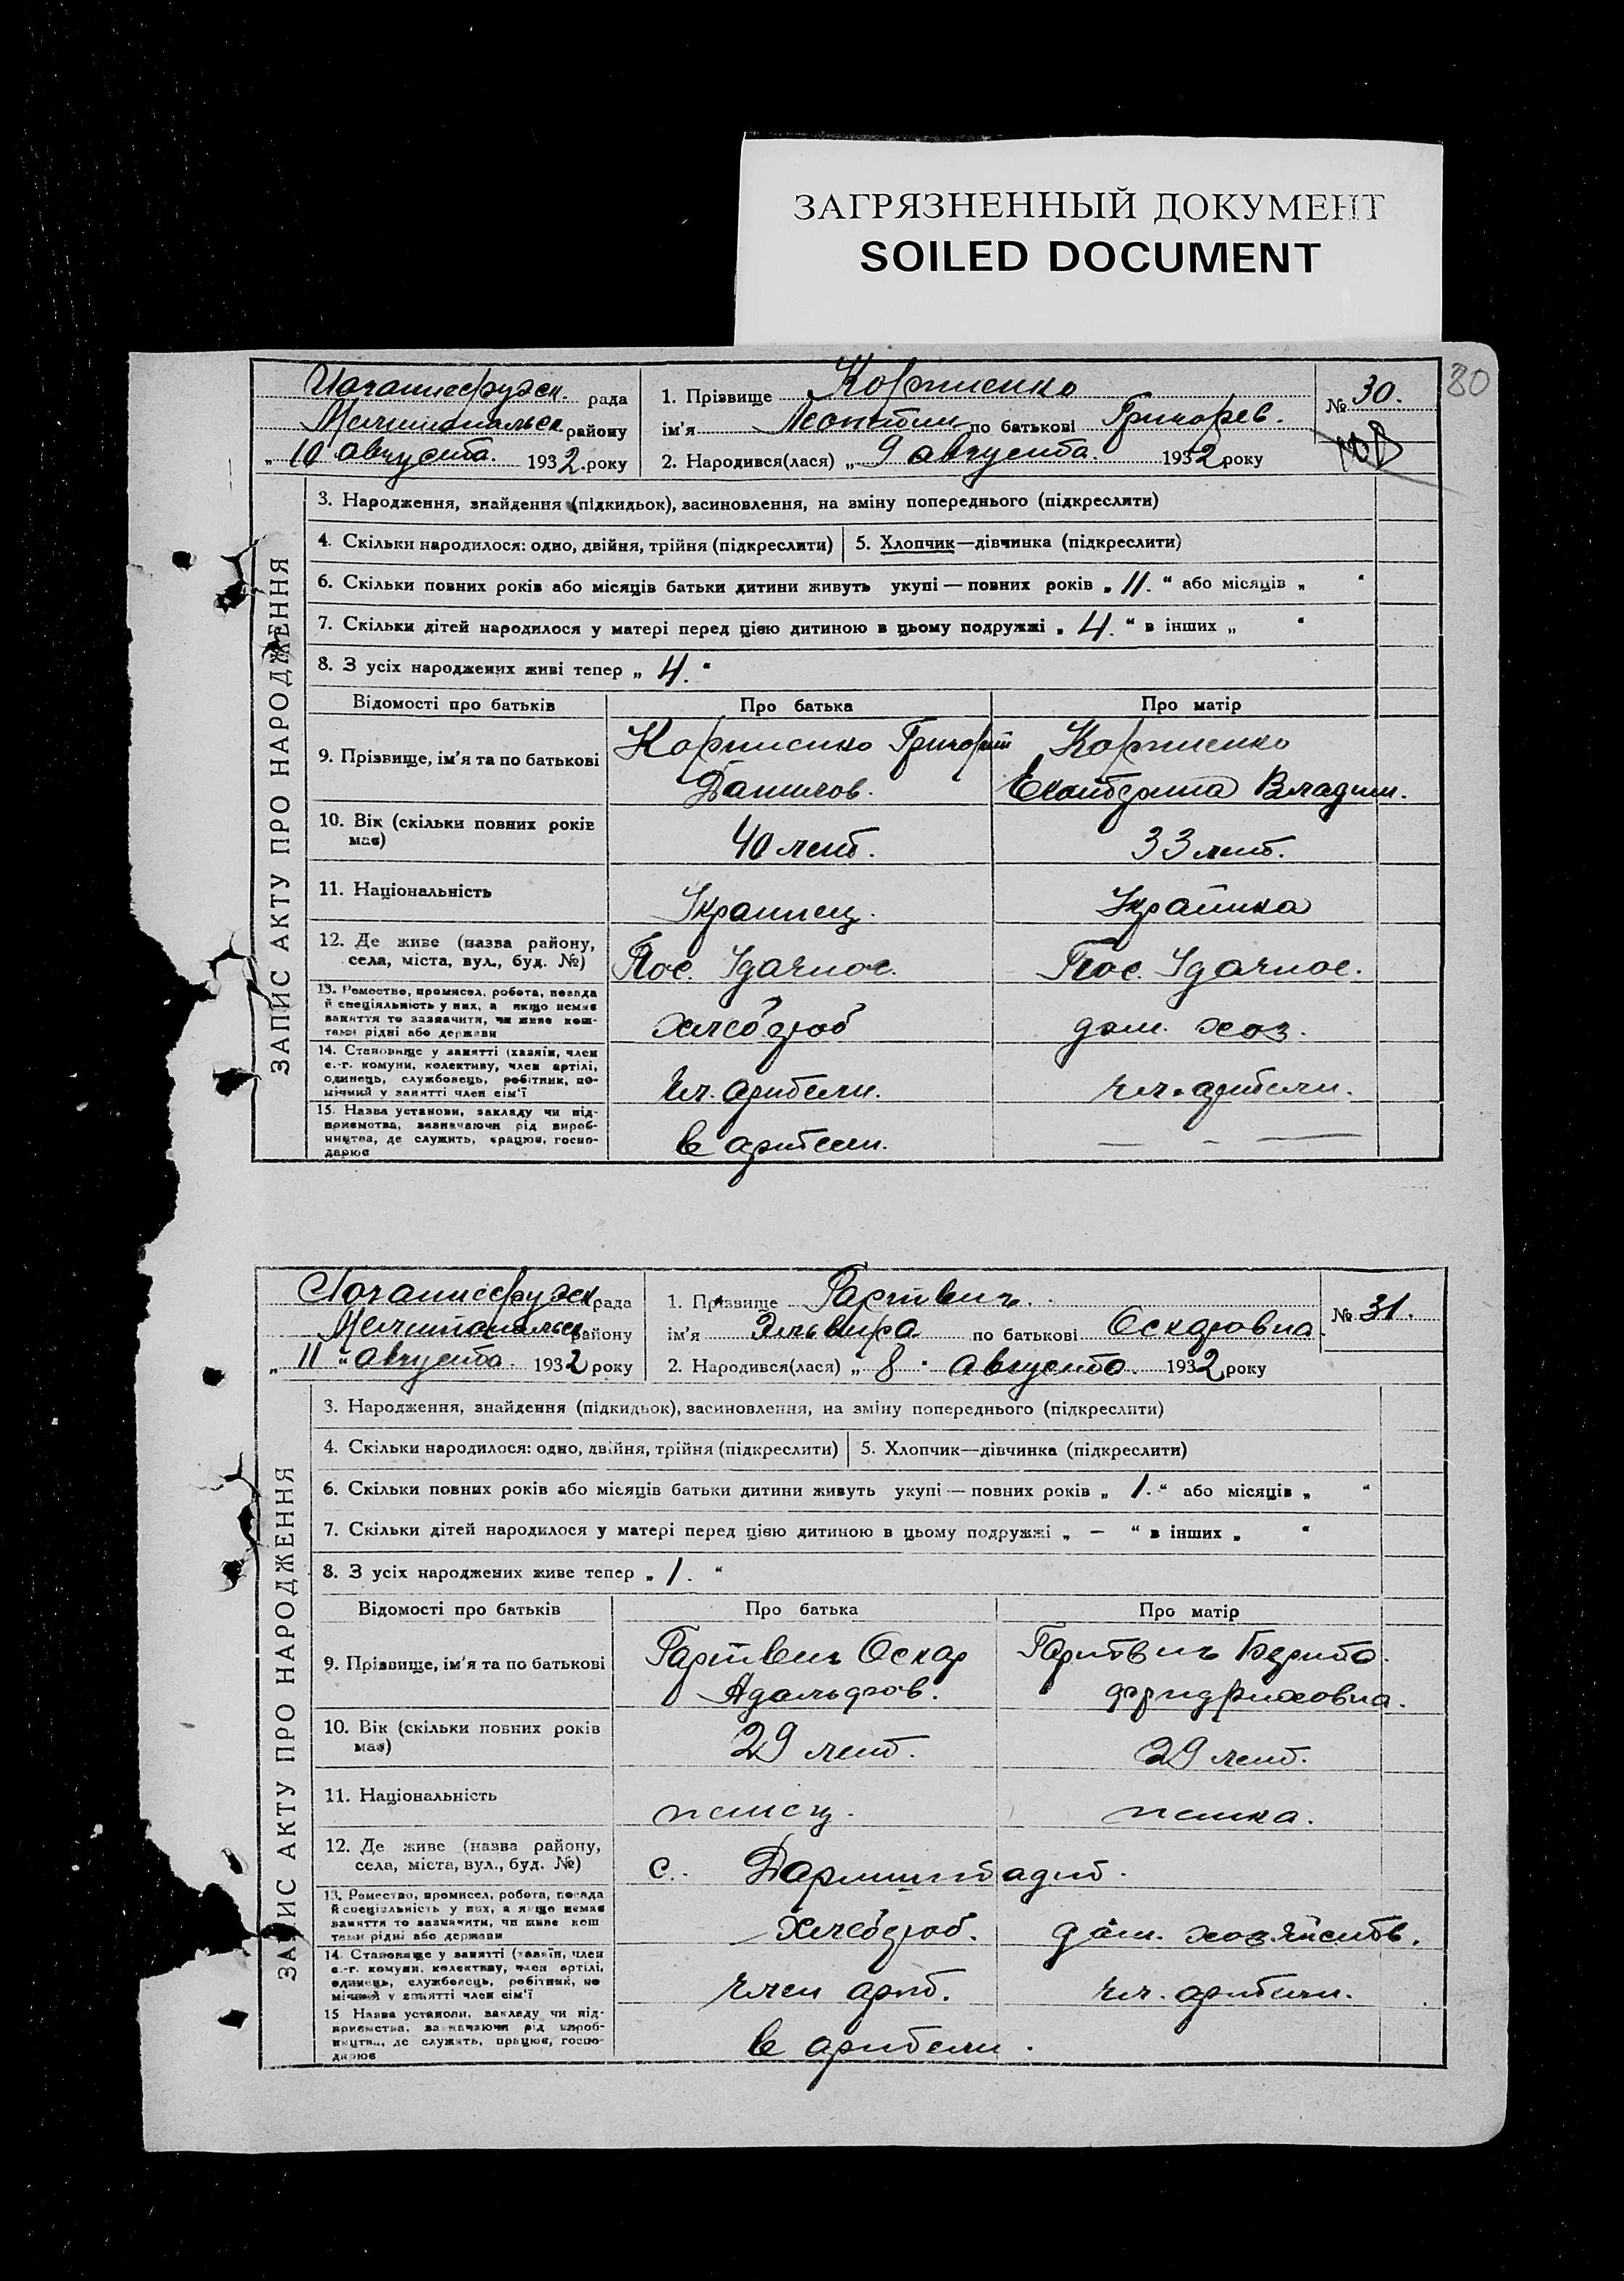 ЗАГРЯЗНЕННЫЙ ДОКУМЕНТ
SOILED DOCUMENT
80
рада
Мелитопольск району
„ 10 августа. 1932. року
1. Прізвище Корниенко
ім'я Леонтин по батькові Григорев.
2. Народився(лася) „ 9 августа. 1932 року
№ 30.
ЗАПИС АКТУ ПРО НАРОДЖЕННЯ
3. Народження, знайдення (підкидьок), засиновлення, на зміну попереднього (підкреслити)
4. Скільки народилося: одно, двійня, трійня (підкреслити) 5. Хлопчик—дівчинка (підкреслити)
6. Скільки повних років або місяців батьки дитини живуть укупі — повних років „ 11. “ або місяців „ “
7. Скільки дітей народилося у матері перед цією дитиною в цьому подружжі „ 4. “ в інших „ “
8. З усіх народжених живі тепер „ 4. “
Відомості про батьків Про батька Про матір
9. Прізвище, ім'я та по батькові
Корниенко Григорий
Данилов.
Корниенко
Екатерина Владим.
10. Вік (скільки повних років
має)
40 лет. 33 лет.
11. Національність
Украинец. Украинка
12. Де живе (назва району,
села, міста, вул., буд. №)
Пос. Удачное. Пос. Удачное.
13. Ремество, промисел, робота, посада
й спеціяльність у них, а якщо немає
заняття то зазначити, чи живе кош-
тами рідні або держави
хлебороб дом. хоз.
14. Становище у занятті (хазяїн, член
с.-г. комуни, колективу, член артілі,
одинець, службовець, робітник, по-
мічний у занятті член сім'ї
Чл. артели. чл. артели.
15. Назва установи, закладу чи під-
приємства, зазначаючи рід вироб-
ництва, де служить, працює, госпо-
дарює
в артели. — - —
рада
Мелитопольск району
„ 11 “ августа. 1932 року
1. Прізвище Гартвиг.
ім'я Эльвира по батькові Оскаровна.
2. Народився(лася) „ 8 . августа. 1932 року
№ 31.
ЗАПИС АКТУ ПРО НАРОДЖЕННЯ
3. Народження, знайдення (підкидьок), засиновлення, на зміну попереднього (підкреслити)
4. Скільки народилося: одно, двійня, трійня (підкреслити) 5. Хлопчик—дівчинка (підкреслити)
6. Скільки повних років або місяців батьки дитини живуть укупі — повних років „ 1. “ або місяців „ “
7. Скільки дітей народилося у матері перед цією дитиною в цьому подружжі „ — “ в інших „ “
8. З усіх народжених живе тепер „ 1. “
Відомості про батьків Про батька Про матір
9. Прізвище, ім'я та по батькові
Гартвиг Оскар
Адольфов.
Гартвиг Берта
Фридриховна.
10. Вік (скільки повних років
має)
29 лет. 29 лет.
11. Національність
немец. немка.
12. Де живе (назва району,
села, міста, вул., буд. №)
с. Дармштадт.
13. Ремество, промисел, робота, посада
й спеціяльність у них, а якщо немає
заняття то зазначити, чи живе кош
тами рідні або держави
Хлебороб. дом. хозяйств.
14. Становище у занятті (хазяїн, член
с.-г. комуни, колективу, член артілі,
одинець, службовець, робітник, по
мічний у занятті член сім'ї
член арт. чл. артели.
15 Назва установи, закладу чи під-
приємства, зазначаючи рід вироб-
ництва, де служить, працює, госпо-
дарює
в артели.